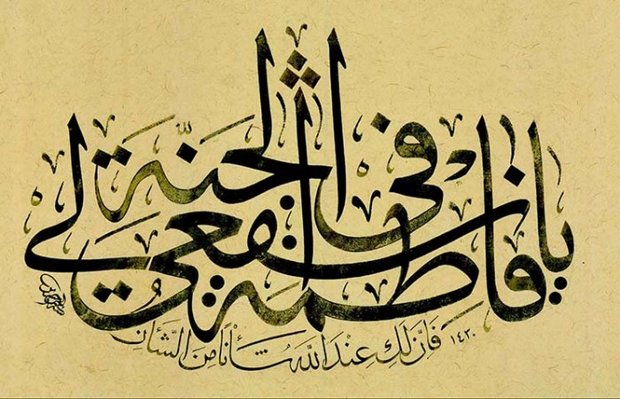 يا فاطمة اشفعي لي في الجنّة
فَإنَّ لَكِ عِنْدَ اللهِ شَأْنًا مِنَ الشَّأْنِ
١٤٢٠